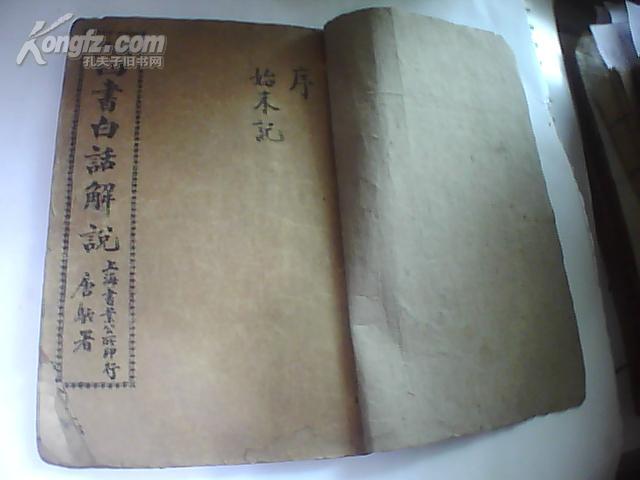 Kongfz.com
孔夫子旧书网
尚書白話解說
上海書業公所印行
唐駝署
序
始末記